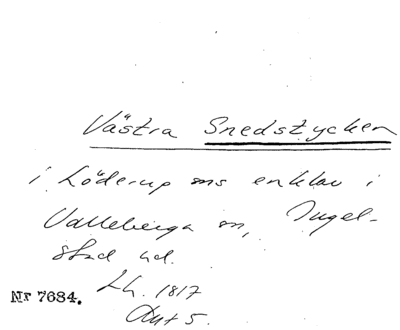 Västra Snedstycken
i Löderup sns enklav i
Valleberga sn, Ingel-
stad hd.
Lh. 1817
Nr 7684.
Akt 5.